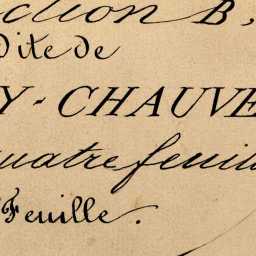 ction B,
Dite de
Y-CHAUVE
quatre feuill
Feuille.